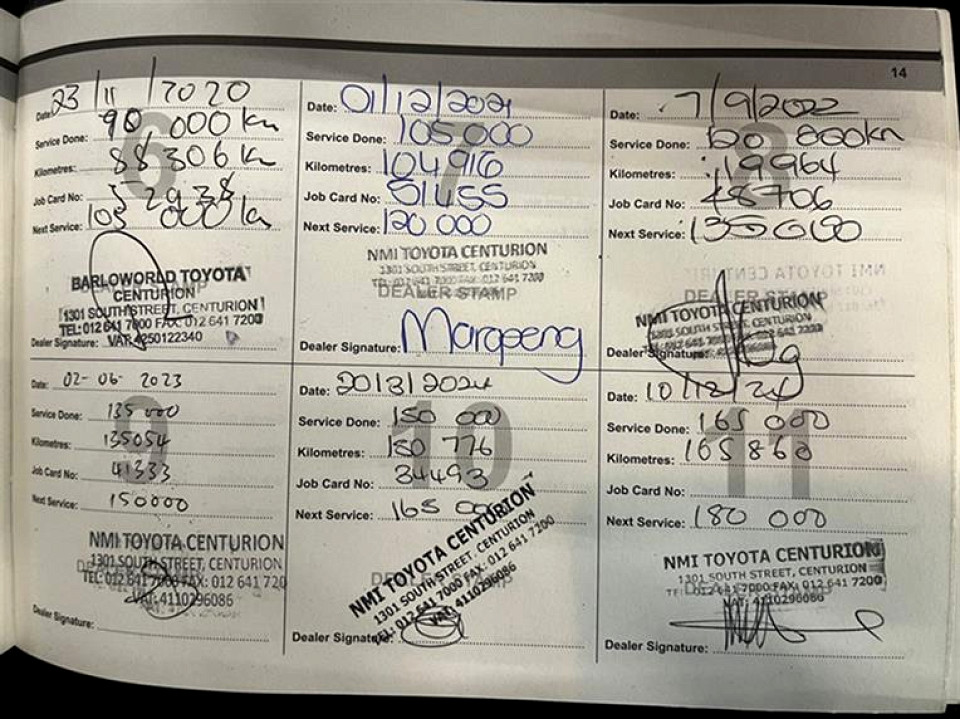 14
Date: 23/11/2020
Service Done: 90,000 km
Kilometres: 88306 km
Job Card No: 32938
Next Service: 105 000 km
6
BARLOWORLD TOYOTA
CENTURION
1301 SOUTH STREET, CENTURION
TEL: 012 641 7000 FAX: 012 641 7200
VAT: 4250122340
Dealer Signature:
Date: 01/12/2021
Service Done: 105000
Kilometres: 104916
Job Card No: 51455
Next Service: 120 000
7
NMI TOYOTA CENTURION
1301 SOUTH STREET, CENTURION
TEL: 012 641 7000 FAX: 012 641 7200
DEALER STAMP
Dealer Signature: Marapeng
Date: 7/9/2022
Service Done: 120 000km
Kilometres: 119964
Job Card No: 48706
Next Service: 135000
8
NMI TOYOTA CENTURION
DEALER STAMP
NMI TOYOTA CENTURION
1301 SOUTH STREET, CENTURION
012 641 7000 FAX: 012 641 7200
Dealer Signature:
Date: 02-06-2023
Service Done: 135 000
Kilometres: 135054
Job Card No: 41333
Next Service: 150000
9
NMI TOYOTA CENTURION
1301 SOUTH STREET, CENTURION
TEL: 012 641 7000 FAX: 012 641 720
VAT: 4110296086
Dealer Signature:
Date: 20/3/2024
Service Done: 150 000
Kilometres: 150 776
Job Card No: 34493
Next Service: 165 000
10
NMI TOYOTA CENTURION
1301 SOUTH STREET, CENTURION
TEL: 012 641 7000 FAX: 012 641 7200
VAT: 4110296086
Dealer Signature:
Date: 10/12/24
Service Done: 165 000
Kilometres: 165860
Job Card No:
Next Service: 180 000
11
NMI TOYOTA CENTURION
1301 SOUTH STREET, CENTURION
TEL: 012 641 7000 FAX: 012 641 7200
VAT: 4110296086
Dealer Signature: